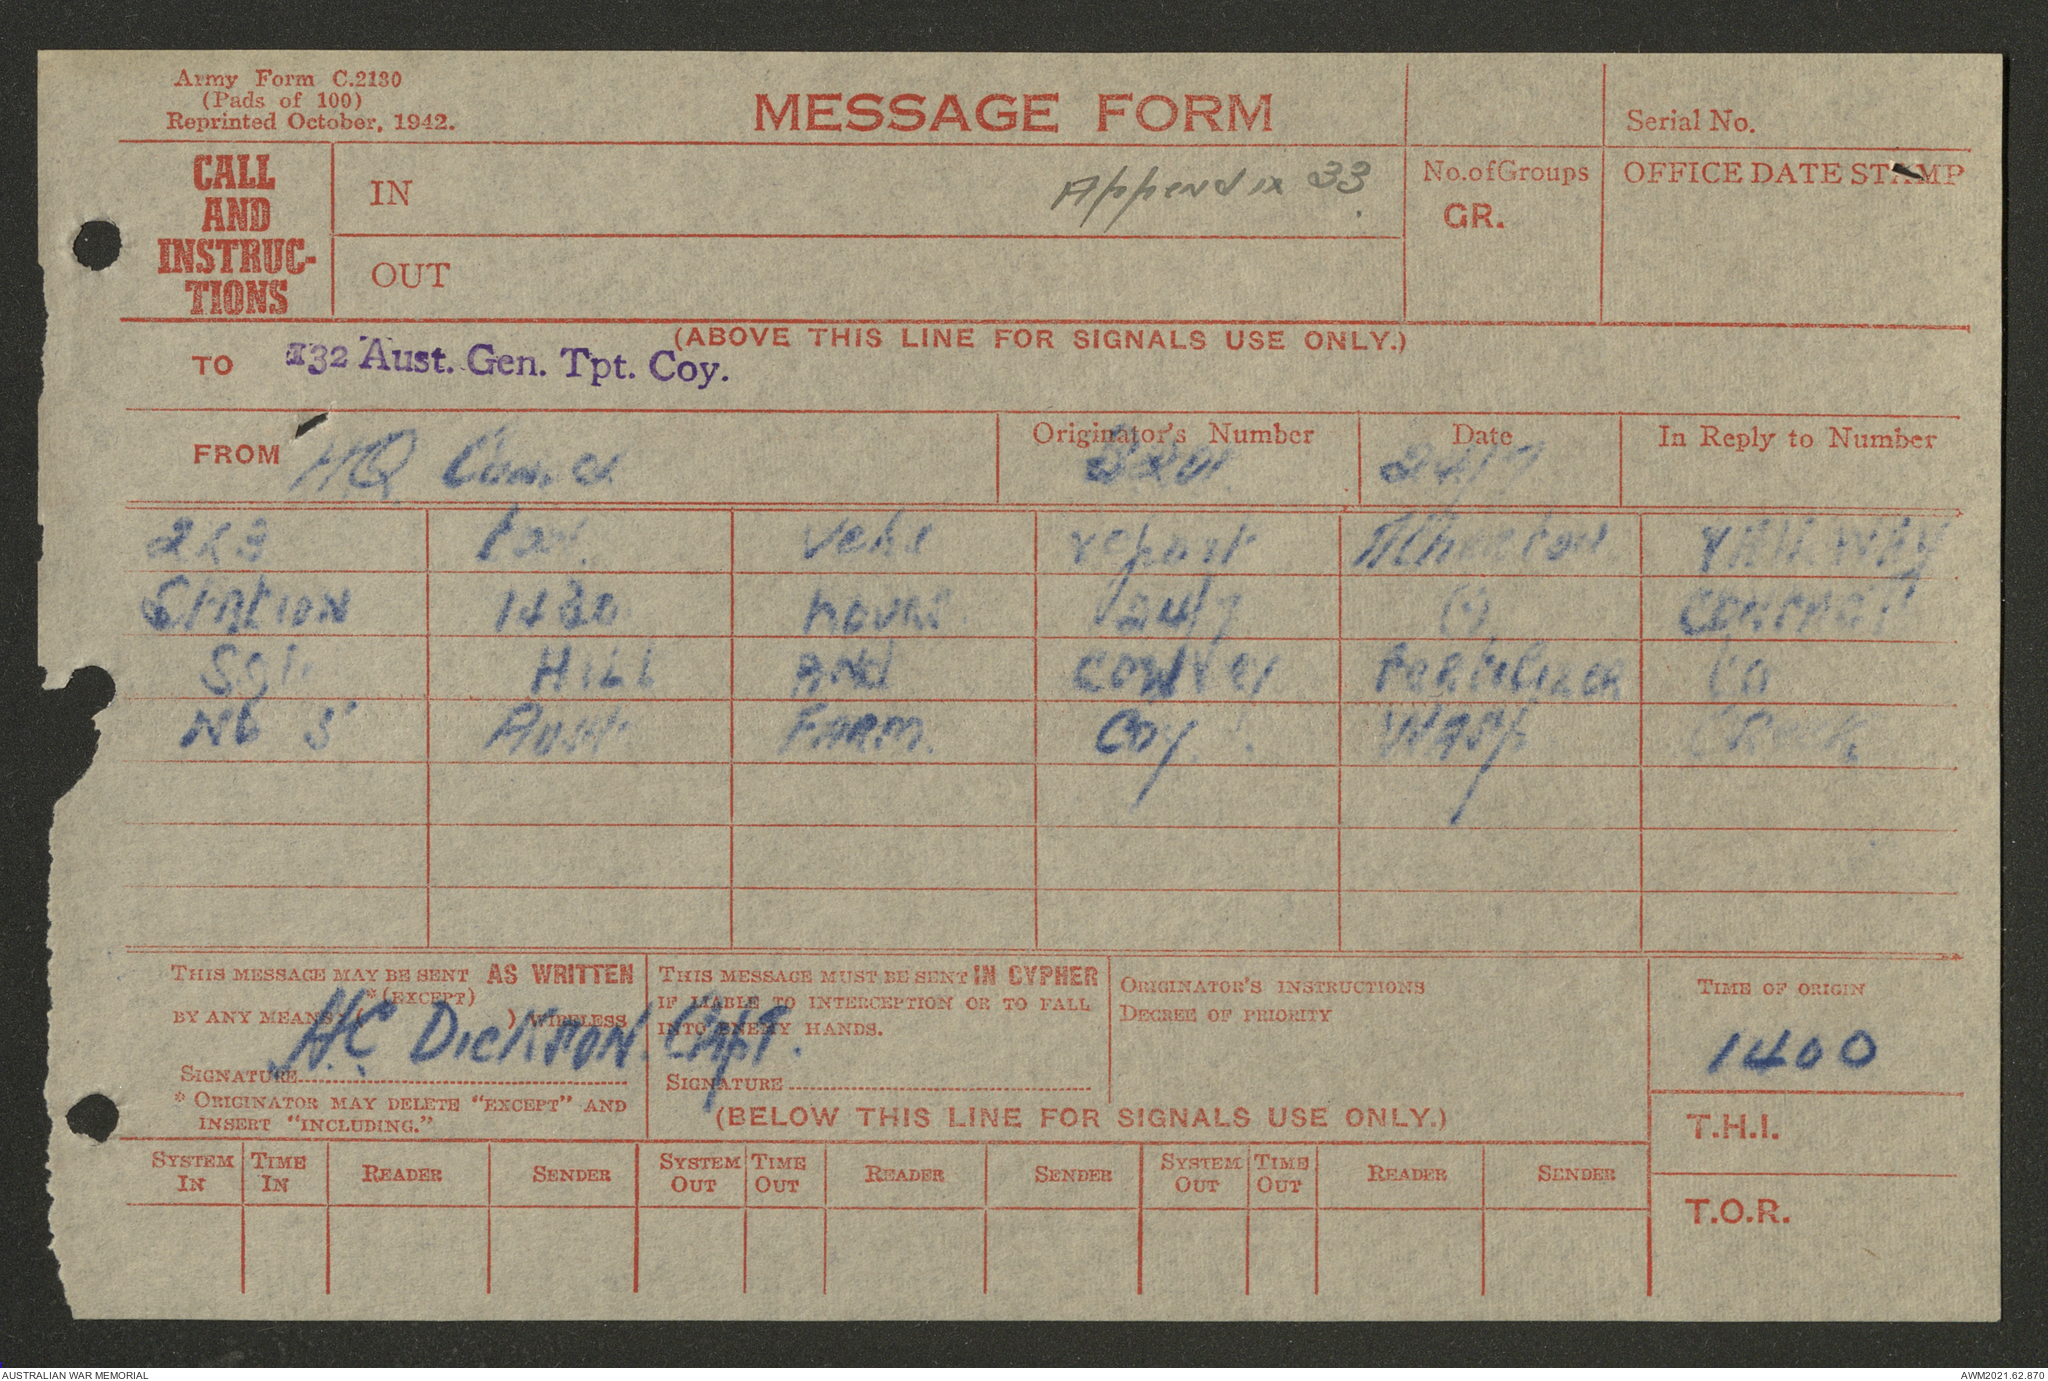 Army Form C.2130
(Pads of 100)
Reprinted October, 1942.
MESSAGE FORM
Serial No.
CALL
AND
INSTRUC-
TIONS
IN
Appendix 33
No.ofGroups
GR.
OFFICE DATE STAMP
OUT
(ABOVE THIS LINE FOR SIGNALS USE ONLY.)
TO 132 Aust. Gen. Tpt. Coy.
FROM HQ
Originator's Number
Date
In Reply to Number
2 x 3 vehs report RAILWAY
STATION hours 24/7 (.) CONTACT
Sgt HILL AND CONVEY
No 5 Aust FARM Coy
THIS MESSAGE MAY BE SENT AS WRITTEN
*(EXCEPT)
BY ANY MEANS ( ) WIRELESS
H.C. DICKSON. Capt.
SIGNATURE
* ORIGINATOR MAY DELETE "EXCEPT" AND
INSERT "INCLUDING."
THIS MESSAGE MUST BE SENT IN CYPHER
IF LIABLE TO INTERCEPTION OR TO FALL
INTO ENEMY HANDS.
SIGNATURE
ORIGINATOR'S INSTRUCTIONS
DEGREE OF PRIORITY
TIME OF ORIGIN
1400
(BELOW THIS LINE FOR SIGNALS USE ONLY.)
T.H.I.
SYSTEM IN TIME IN READER SENDER SYSTEM OUT TIME OUT READER SENDER SYSTEM OUT TIME OUT READER SENDER
T.O.R.
AUSTRALIAN WAR MEMORIAL
AWM2021.62.870